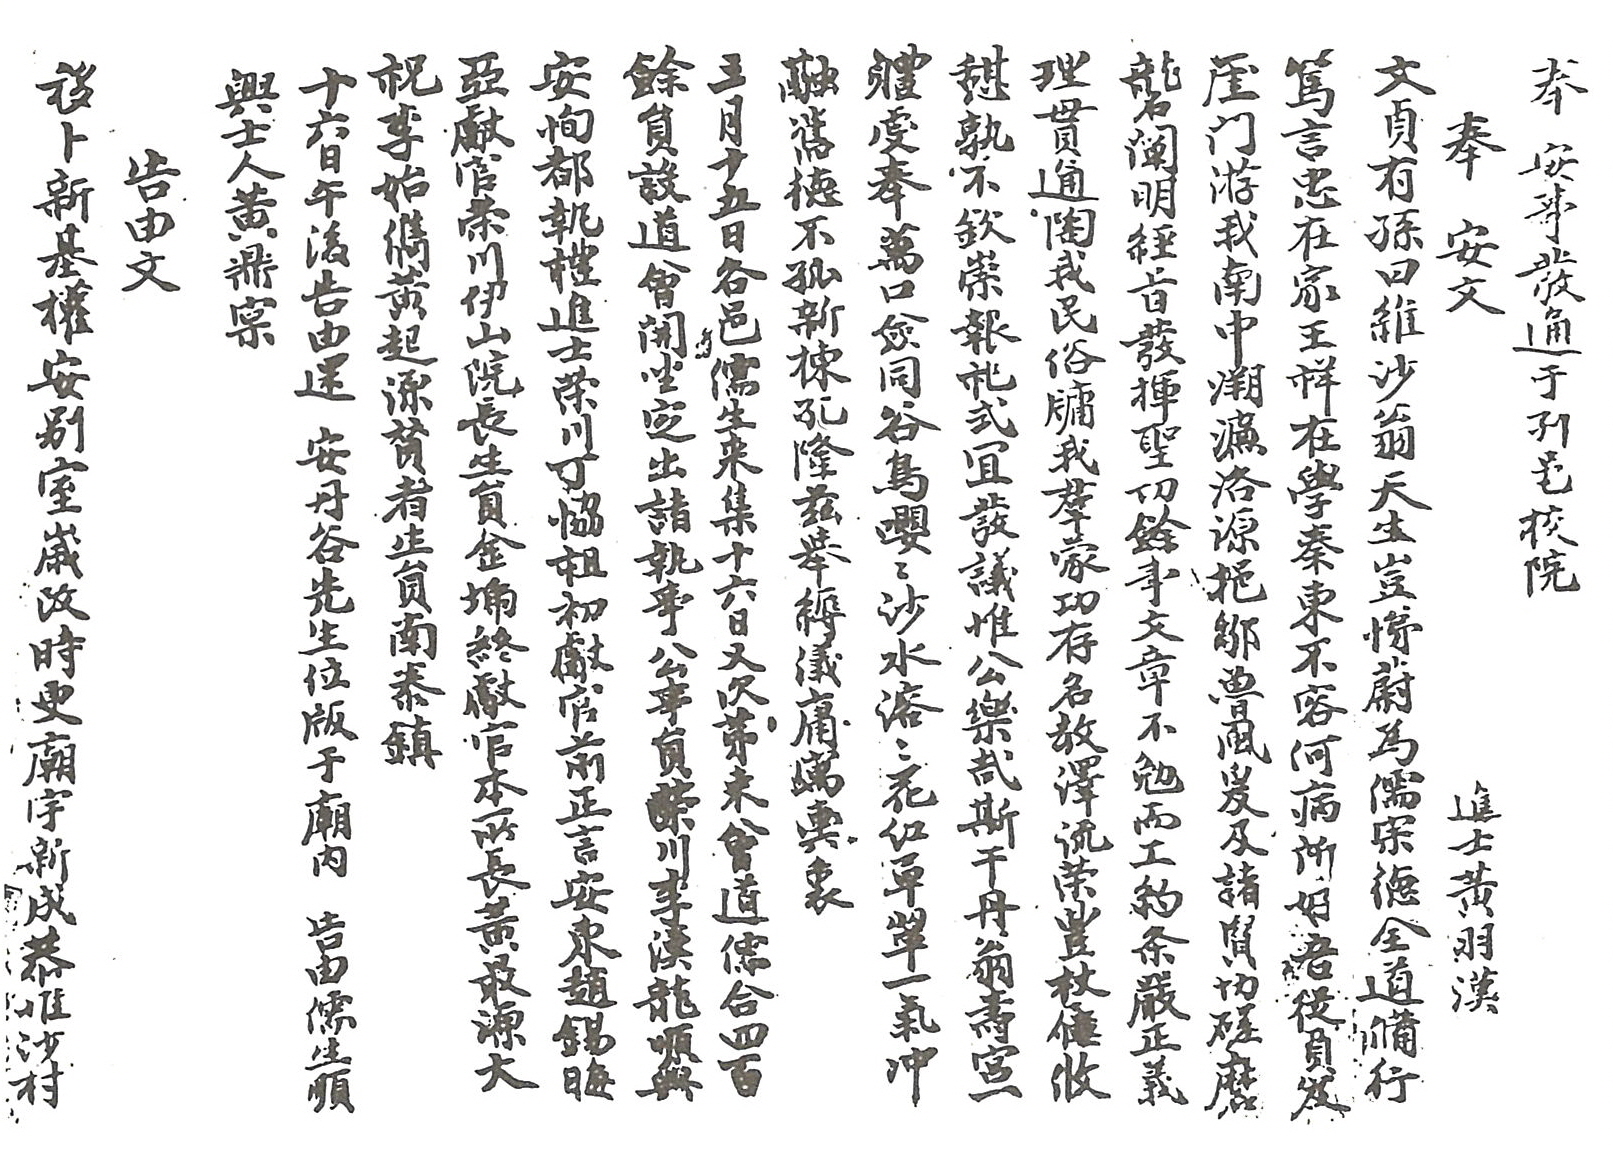 奉 安事發通于列邑校院
奉 安文 進士黃羽漢
文貞有孫曰維沙翁天生豈悌蔚爲儒宗德全道備行
篤言忠在家王祥在學秦東不容何病所好吾從負笈
厓门游我南中溯濂洛源挹鄒魯風爰及諸賢切磋磨
礱闡明經旨發揮聖功餘事文章不勉而工約条嚴正義
理貫通陶我民俗牖我羣蒙功存名教澤流榮豐杖屨攸
憩孰不欽崇報祀式宜發議惟公樂哉斯干丹翁壽宮一
軆虔奉萬口僉同谷鳥嚶〻沙水溶〻花紅草翠一氣冲
融舊德不孤新棟孔隆兹舉縟儀庸寓輿衷
三月十五日各邑儒生來集十六日又次第來會道儒合四百
餘員設道會開坐定出諸執事公事員榮川李漢龍順興
安恂都執禮進士榮川丁協祖初獻官前正言安東趙錫晦
亞獻官榮川伊山院長生員金埇終獻官本所長黃最源大
祝李始儁黃起源贊者生員南泰鎮
十六日午後告由還 安丹谷先生位版于廟内 告由儒生順
興士人黃鼎寀
告由文
移卜新基權安别室歲改時更廟宇新成恭惟沙村